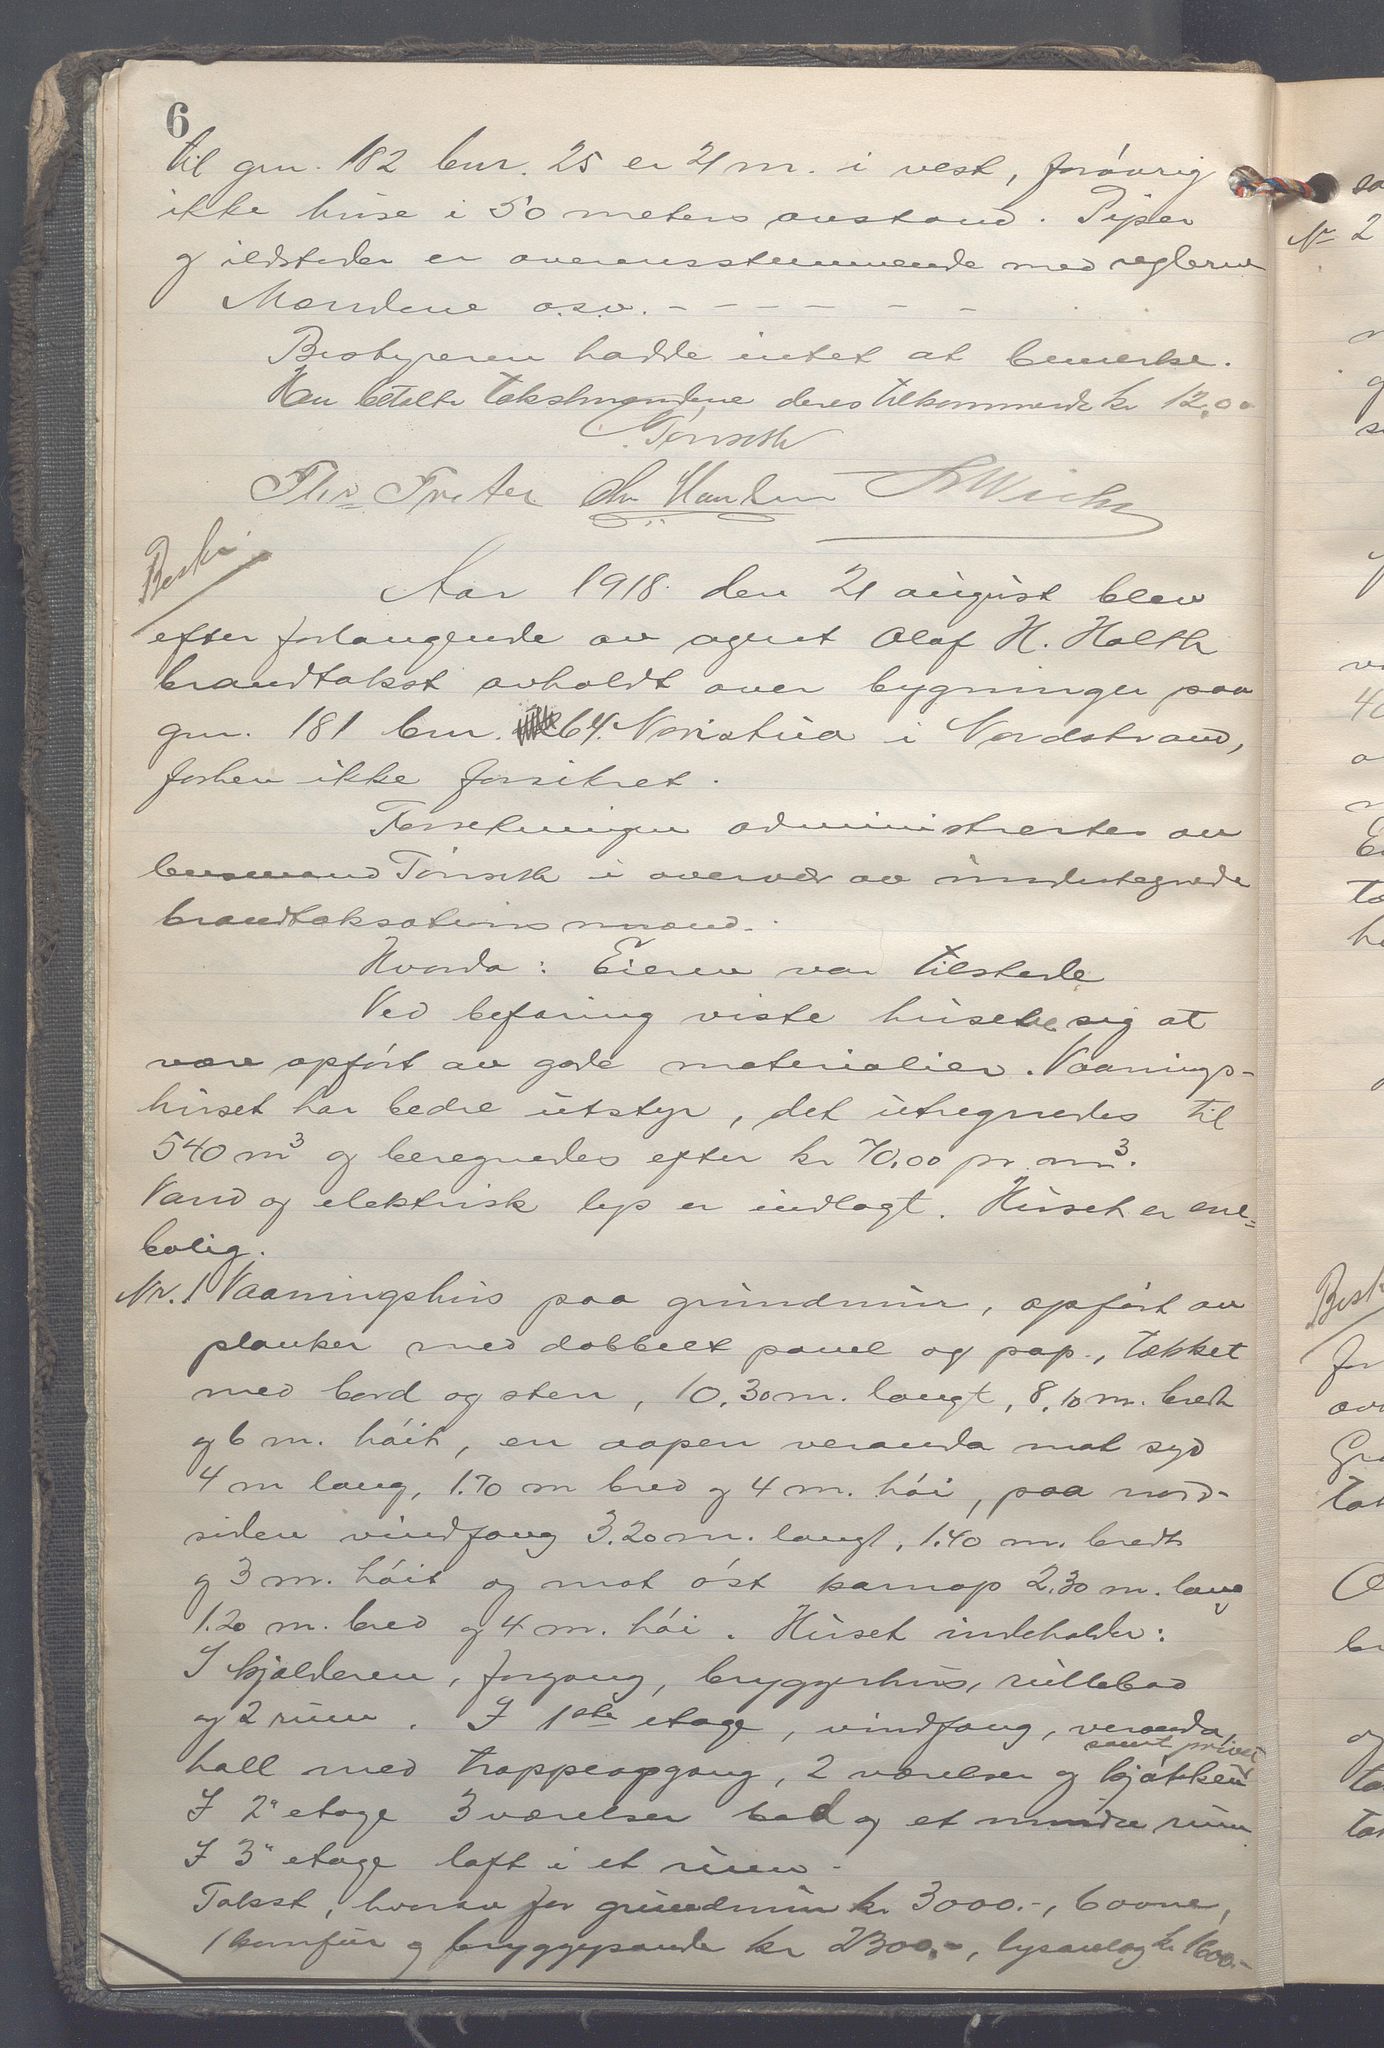 6
til gnr. 182 bnr. 25 er 21 m. i vest, forøvrig
ikke huse i 50 meters avstand. Piper
og ildsteder er overensstemmende med reglerne
Mændene o.s.v. - - - - -
Bestyreren hadde intet at bemerke.
Han betalte takstmændene deres tilkommende kr 12,00
Tønseth
Chr
Beskr.
Aar 1918 den 21 august blev
efter forlangende av agent Olaf H. Holth
brandtakst avholdt over bygninger paa
gnr. 181 bnr. 64. Noristua i Nordstrand,
forhen ikke forsikret.
Forretningen administrertes av
lensmand Tønseth i overvær av undertegnede
brandtaksationsmænd.
Hvorda: Eieren var tilstede
Ved befaring viste husene sig at
være opført av gode materialier. Vaanings-
huset har bedre utstyr, det utregnedes til
540 m³ og beregnedes efter kr 70,00 pr m³.
Vand og elektrisk lys er indlagt. Huset er ene=
bolig.
Nr. 1 Vaaningshus paa grundmur, opført av
planker med dobbelt panel og pap., tækket
med bord og sten, 10.30 m. langt, 8,10 m. bredt
og 6 m. høit, en aapen veranda mot syd
4 m lang, 1.70 m bred og 4 m. høi, paa nord-
siden vindfang 3.20 m. langt, 1.40 m. bredt
og 3 m. høit og mot øst karnap 2.30 m. lang
1.20 m. bred og 4 m. høi. Huset indeholder:
I kjælderen, forgang, bryggerhus, rullebod
og 2 rum. I 1ste etage, vindfang, veranda,
samt privet
hall med trappeopgang, 2 værelser og kjøkken
I 2" etage 3 værelser bad og et mindre rum
I 3" etage loft i et rum.
Takst, hvorav for grundmur kr 3000.-, 6 ovne,
1 komfur og bryggepande kr 2300.-, lysanlæg kr 1600.-
Nr 2
Besk